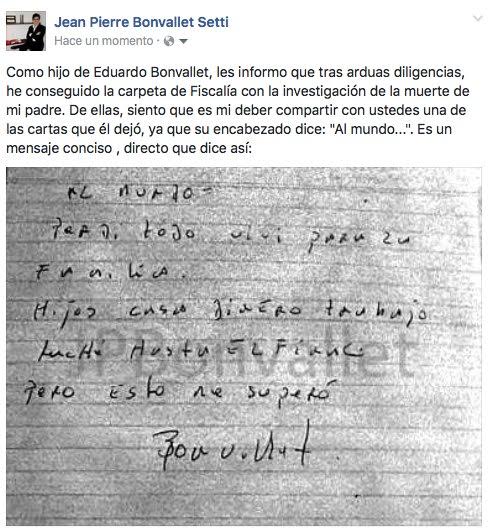 Jean Pierre Bonvallet Setti
Hace un momento ·
Como hijo de Eduardo Bonvallet, les informo que tras arduas diligencias,
he conseguido la carpeta de Fiscalía con la investigación de la muerte de
mi padre. De ellas, siento que es mi deber compartir con ustedes una de
las cartas que él dejó, ya que su encabezado dice: "Al mundo...". Es un
mensaje conciso , directo que dice así:
AL MUNDO-
PERDI todo viví para la
FAMILIA.
Hijos casa DINERO trabajo
Luché HASTA EL FINAL
JPBonvallet
PERO ESTO me superó
Bonvallet